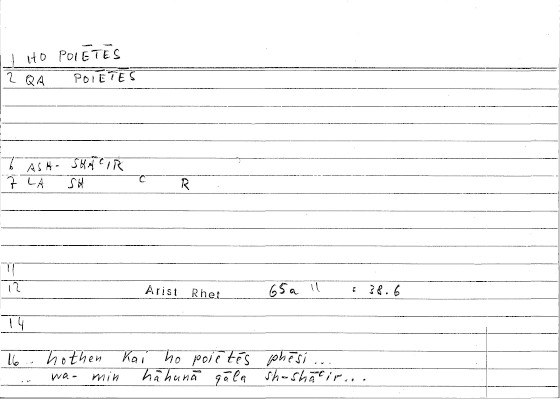 1 HO POIĒTĒS
2 QA POIĒTĒS
6 ASH-SHĀʿIR
7 LA SH ʿ R
11
12 Arist Rhet 65a 11 : 38.6
14
16 .. hothen kai ho poiētēs phēsi...
.. wa- min hāhunā qāla sh-shāʿir...